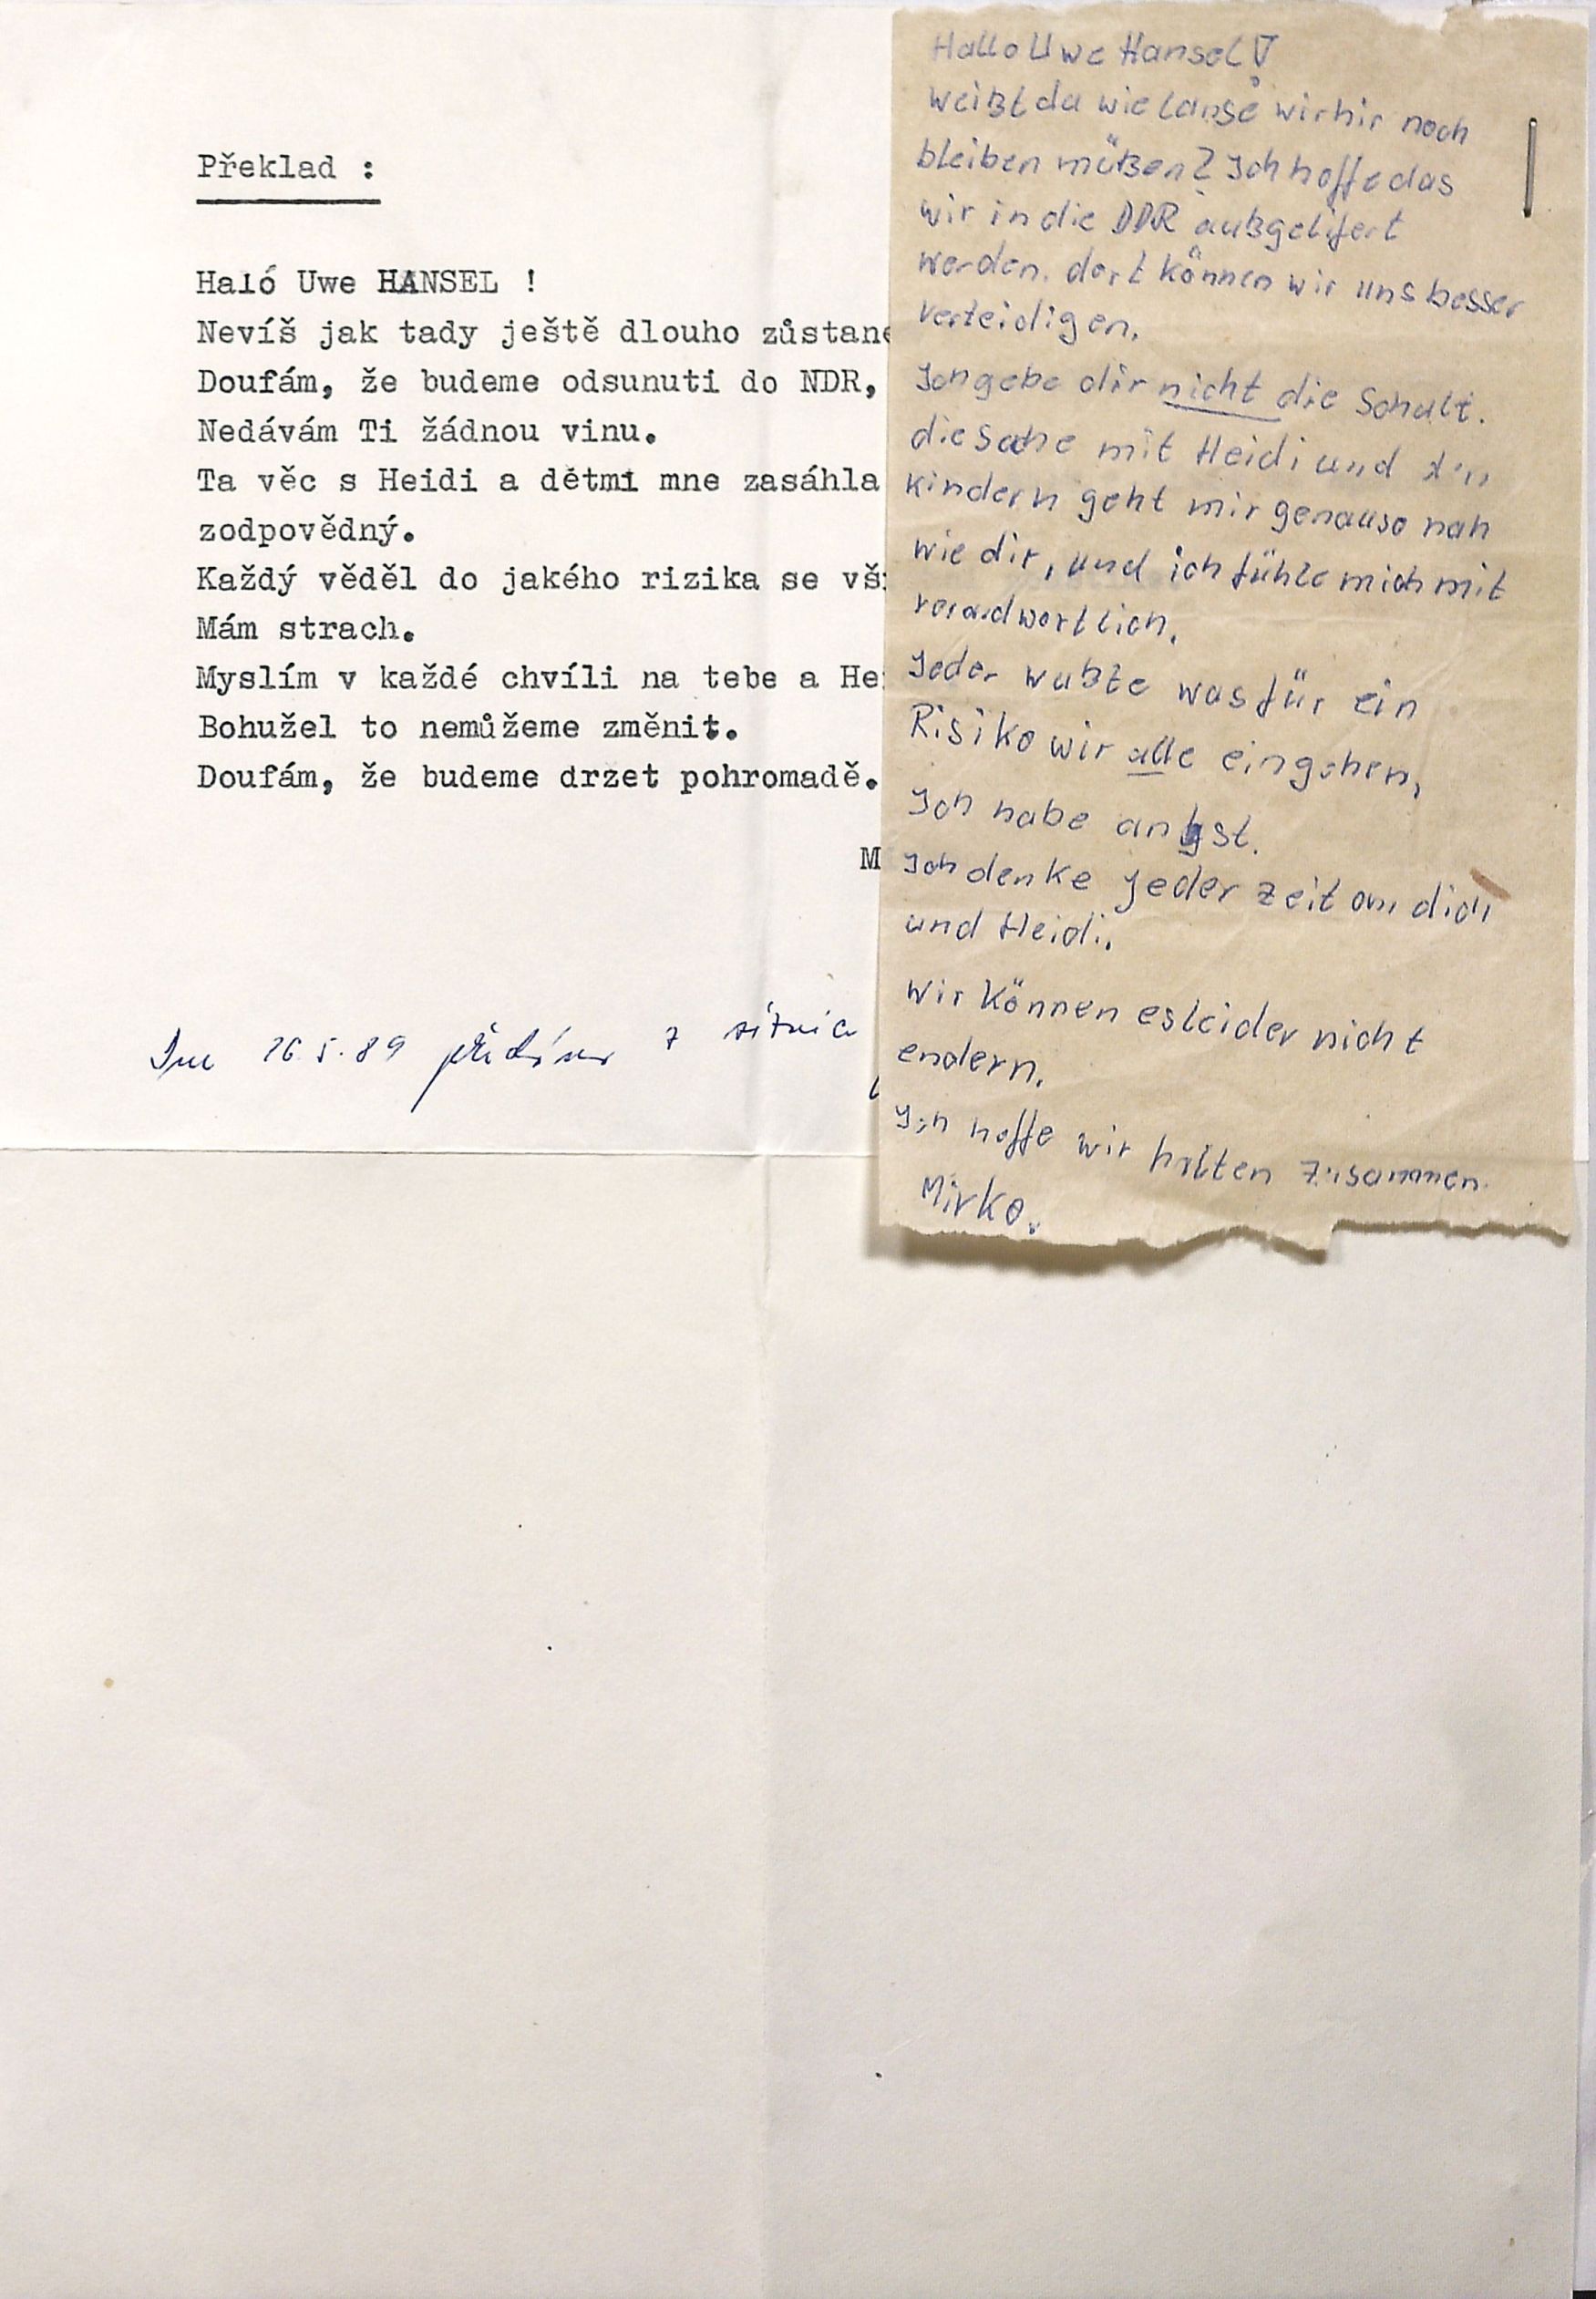 Překlad :
Haló Uwe HANSEL !
Nevíš jak tady ještě dlouho zůstane
Doufám, že budeme odsunuti do NDR,
Nedávám Ti žádnou vinu.
Ta věc s Heidi a dětmi mne zasáhla
zodpovědný.
Každý věděl do jakého rizika se vš
Mám strach.
Myslím v každé chvíli na tebe a He
Bohužel to nemůžeme změnit.
Doufám, že budeme držet pohromadě.
M
Dne 26.5.89 z
Hallo Uwe Hansel!
weißt du wie lange wir hir noch
bleiben müßen? Ich hoffe das
wir in die DDR außgelifert
werden. dort können wir uns besser
verteidigen.
Ich gebe dir nicht die Schult.
die Sache mit Heidi und den
kindern geht mir genauso nah
wie dir, und ich fühle mich mit
verandwortlich.
Jeder wußte was für ein
Risiko wir alle eingehen,
Ich habe angst.
Ich denke jeder zeit an dich
und Heidi.
Wir können es leider nicht
endern.
Ich hoffe wir halten zusammen.
Mirko.